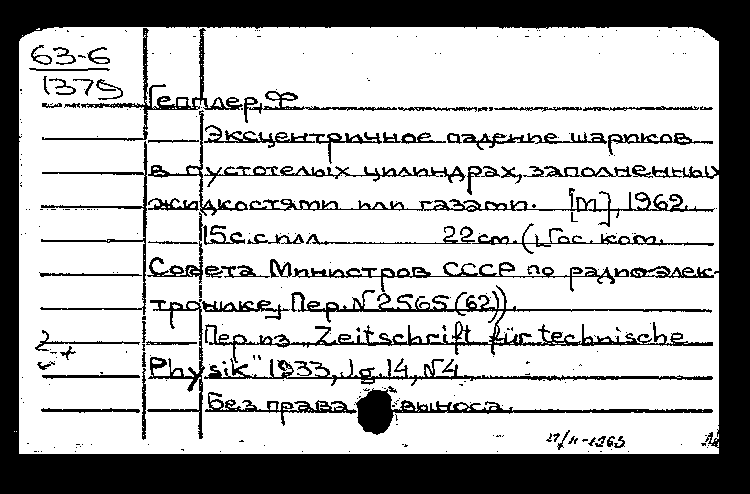 63-6
1379
Гепплер, Ф
Эксцентричное падение шариков
в пустотелых цилиндрах, заполненных
жидкостями или газами. [М], 1962.
15 с. с илл. 22 см. (Гос. ком.
Совета Министров СССР по радиоэлек-
тронике, Пер. N 2565 (62)).
Пер. из „Zeitschrift für technische
Physik" 1933, Jg. 14, N4.
Без права выноса.